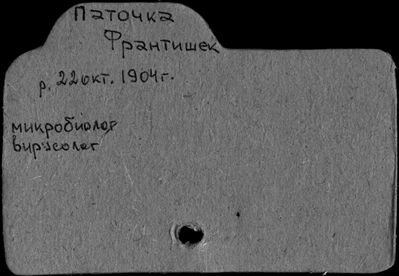 Паточка
Франтишек
р. 22 окт. 1904 г.
микробиолог
вирусолог